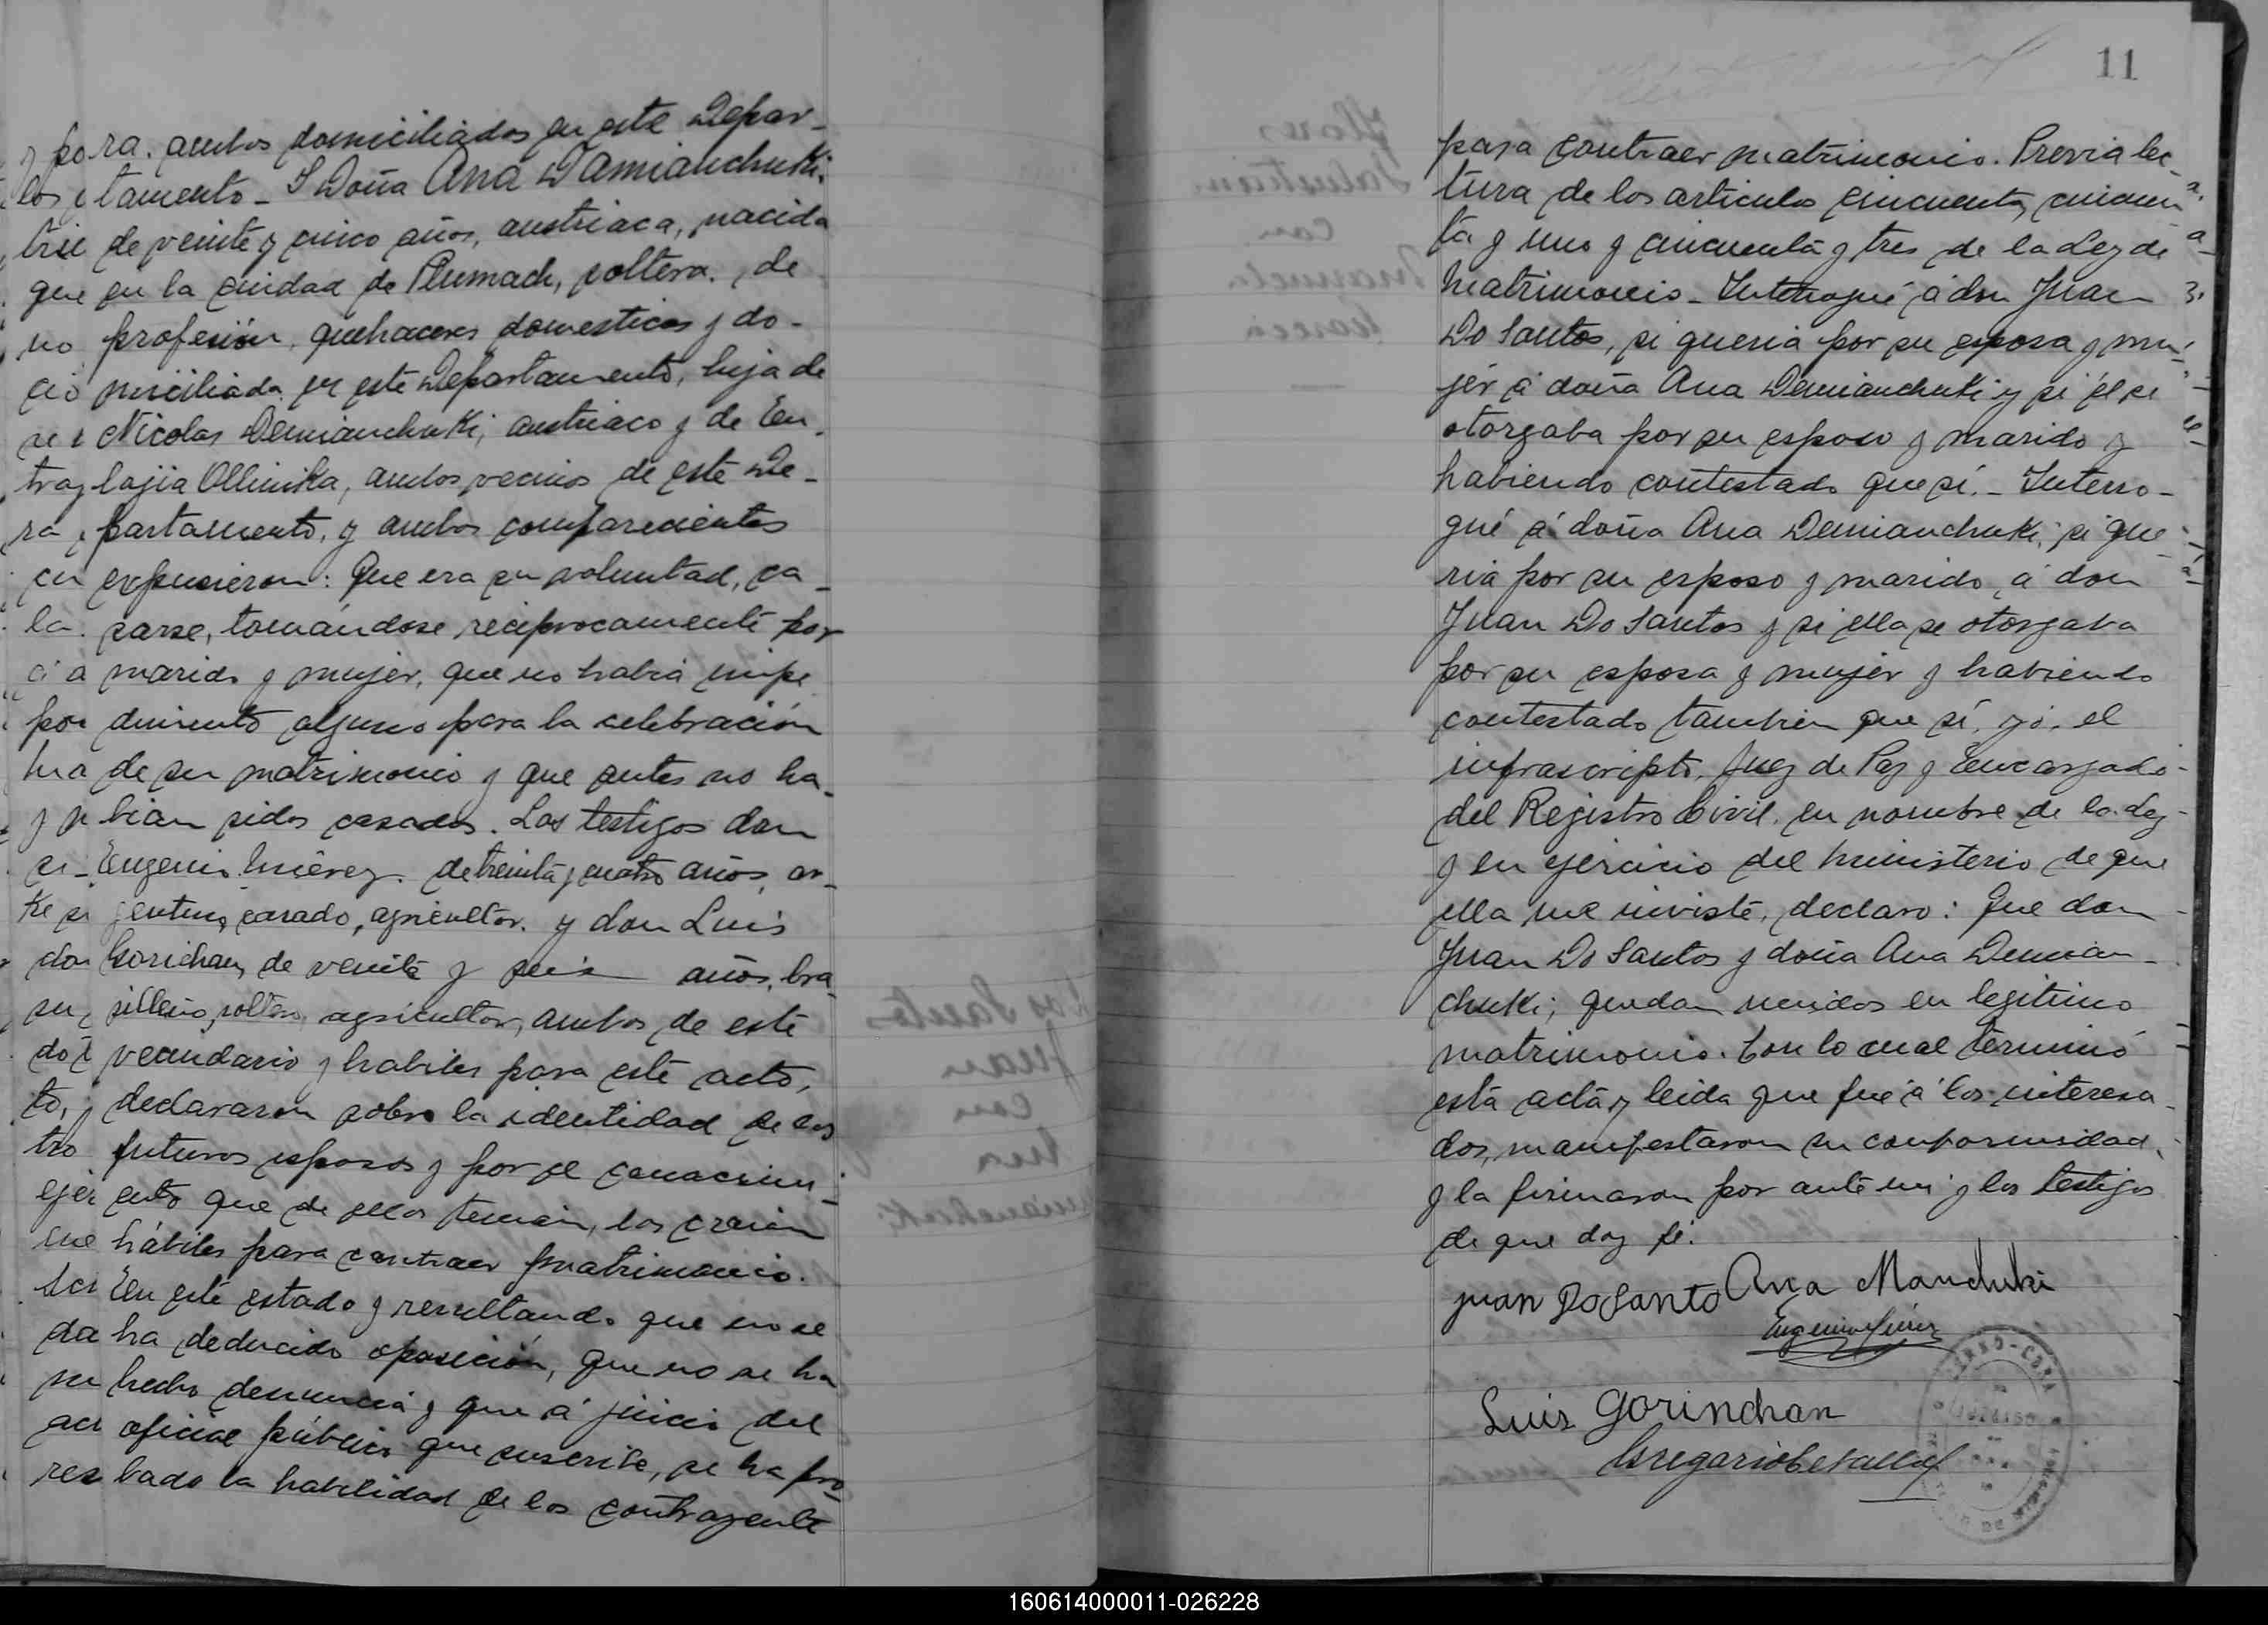 ra. ambos domiciliados en este Depar-
tamento - I Doña Ana Damianchuki.
de veinte y cinco años, austriaca, nacida
en la ciudad de Plumach, soltera. de
profesión, quehaceres domesticos y do-
miciliada en este Departamento, hija de
Nicolas Demianchuki, austriaco y de Eu
lajia Ollinika, ambos vecinos de este De-
partamento, y ambos comparecientes
expusieron: Que era su voluntad, ca-
sarse, tomándose reciprocamente por
marido y mujer, que no habia impe
dimento alguno para la celebración
de su matrimonio y que antes no ha-
bian sidos casados. Los testigos don
Eugenio de treinta y cuatro años, ar-
jentino, casado, agricultor. y don Luis
Gorichan, de veinte y seis años, bra
silleño, soltero, agricultor, ambos de este
vecindario y habiles para este acto,
declararon sobre la identidad de los
futuros esposos y por el conocimi-
ento que de ellos tenian, los creian
hábiles para contraer matrimonio.
En este estado y resultando que no se
ha deducido oposición, que no se ha
hecho denuncia y que á juicio del
oficial público que suscribe, se ha pro-
bado la habilidad de los contrayente
11
para contraer matrimonio. Previa lec-
tura de los articulos cincuenta, cincuen
ta y uno y cincuenta y tres de la Ley de
Matrimonio - Interrogué á don Juan
Do Santos, si queria por su esposa y mu-
jer á doña Ana Demianchuki y si él se
otorgaba por su esposo y marido y
habiendo contestado que sí. - Interro-
gué á doña Ana Demianchuki; si que-
ria por su esposo y marido, á don
Juan Do Santos y si ella se otorgaba
por su esposa y mujer y habiendo
contestado tambien que sí, yó, el
infrascripto, Juez de Paz y Encargado
del Registro Civil, en nombre de la Ley
y en ejercicio del ministerio de que
ella me inviste, declaro: Que don
Juan Do Santos y doña Ana Demian-
chuki; quedan unidos en legitimo
matrimonio. Con lo cual terminó
esta acta y leida que fué á los interesa-
dos, manifestaron su conformidad,
y la firmaron por ante mi y los testigos
de que doy fé.
juan Do Santo Ana Manduki
Eugenio
Luis Gorinchan
Gregorio
160614000011-026228